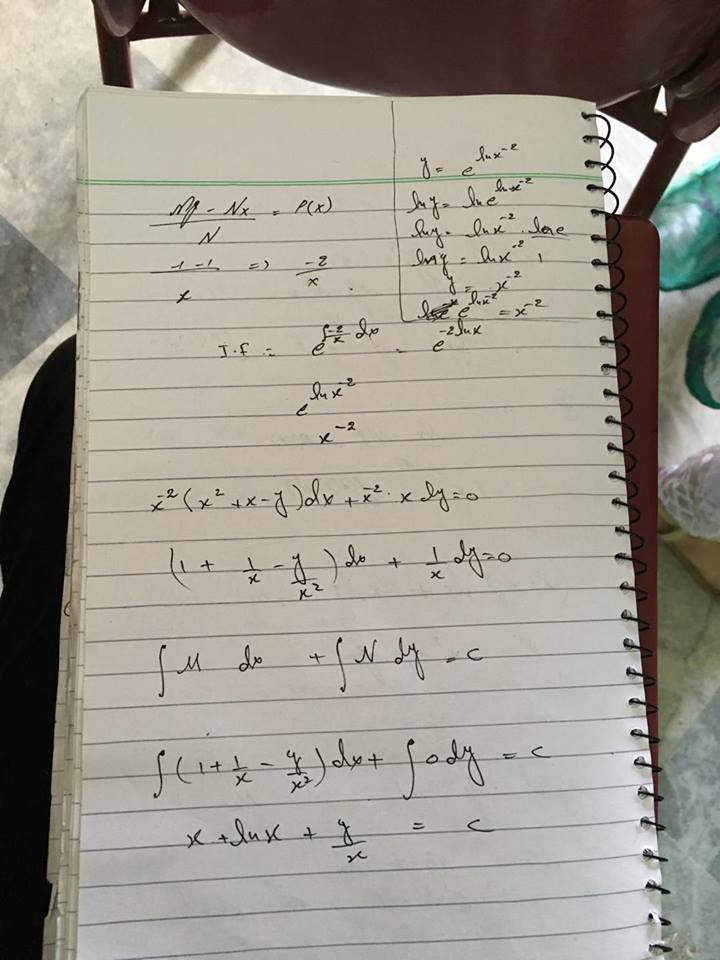 My - Nx / N = P(x)
-1 - 1 / x => -2 / x
y = e^{ln x^{-2}}
ln y = ln e^{ln x^{-2}}
ln y = ln x^{-2} · ln e
ln y = ln x^{-2} 1
y = x^{-2}
e^{ln x^{-2}} = x^{-2}
I.f = e^{∫ -2/x dx} = e^{-2 ln x}
e^{ln x^{-2}}
x^{-2}
x^{-2} (x^2 + x - y) dx + x^{-2} · x dy = 0
(1 + 1/x - y/x^2) dx + 1/x dy = 0
∫ M dx + ∫ N dy = c
∫ (1 + 1/x - y/x^2) dx + ∫ 0 dy = c
x + ln x + y/x = c